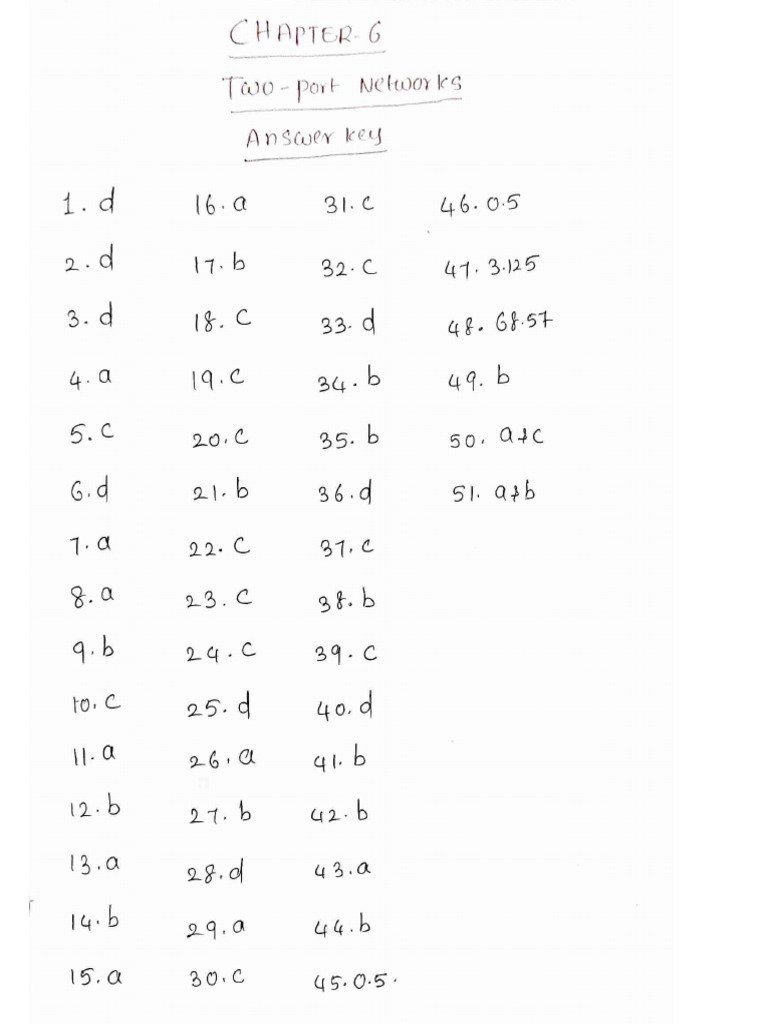 CHAPTER-6
Two-port Networks
Answer key
1. d 16. a 31. c 46. 0.5
2. d 17. b 32. c 47. 3.125
3. d 18. c 33. d 48. 68.57
4. a 19. c 34. b 49. b
5. c 20. c 35. b 50. a & c
6. d 21. b 36. d 51. a & b
7. a 22. c 37. c
8. a 23. c 38. b
9. b 24. c 39. c
10. c 25. d 40. d
11. a 26. a 41. b
12. b 27. b 42. b
13. a 28. d 43. a
14. b 29. a 44. b
15. a 30. c 45. 0.5.